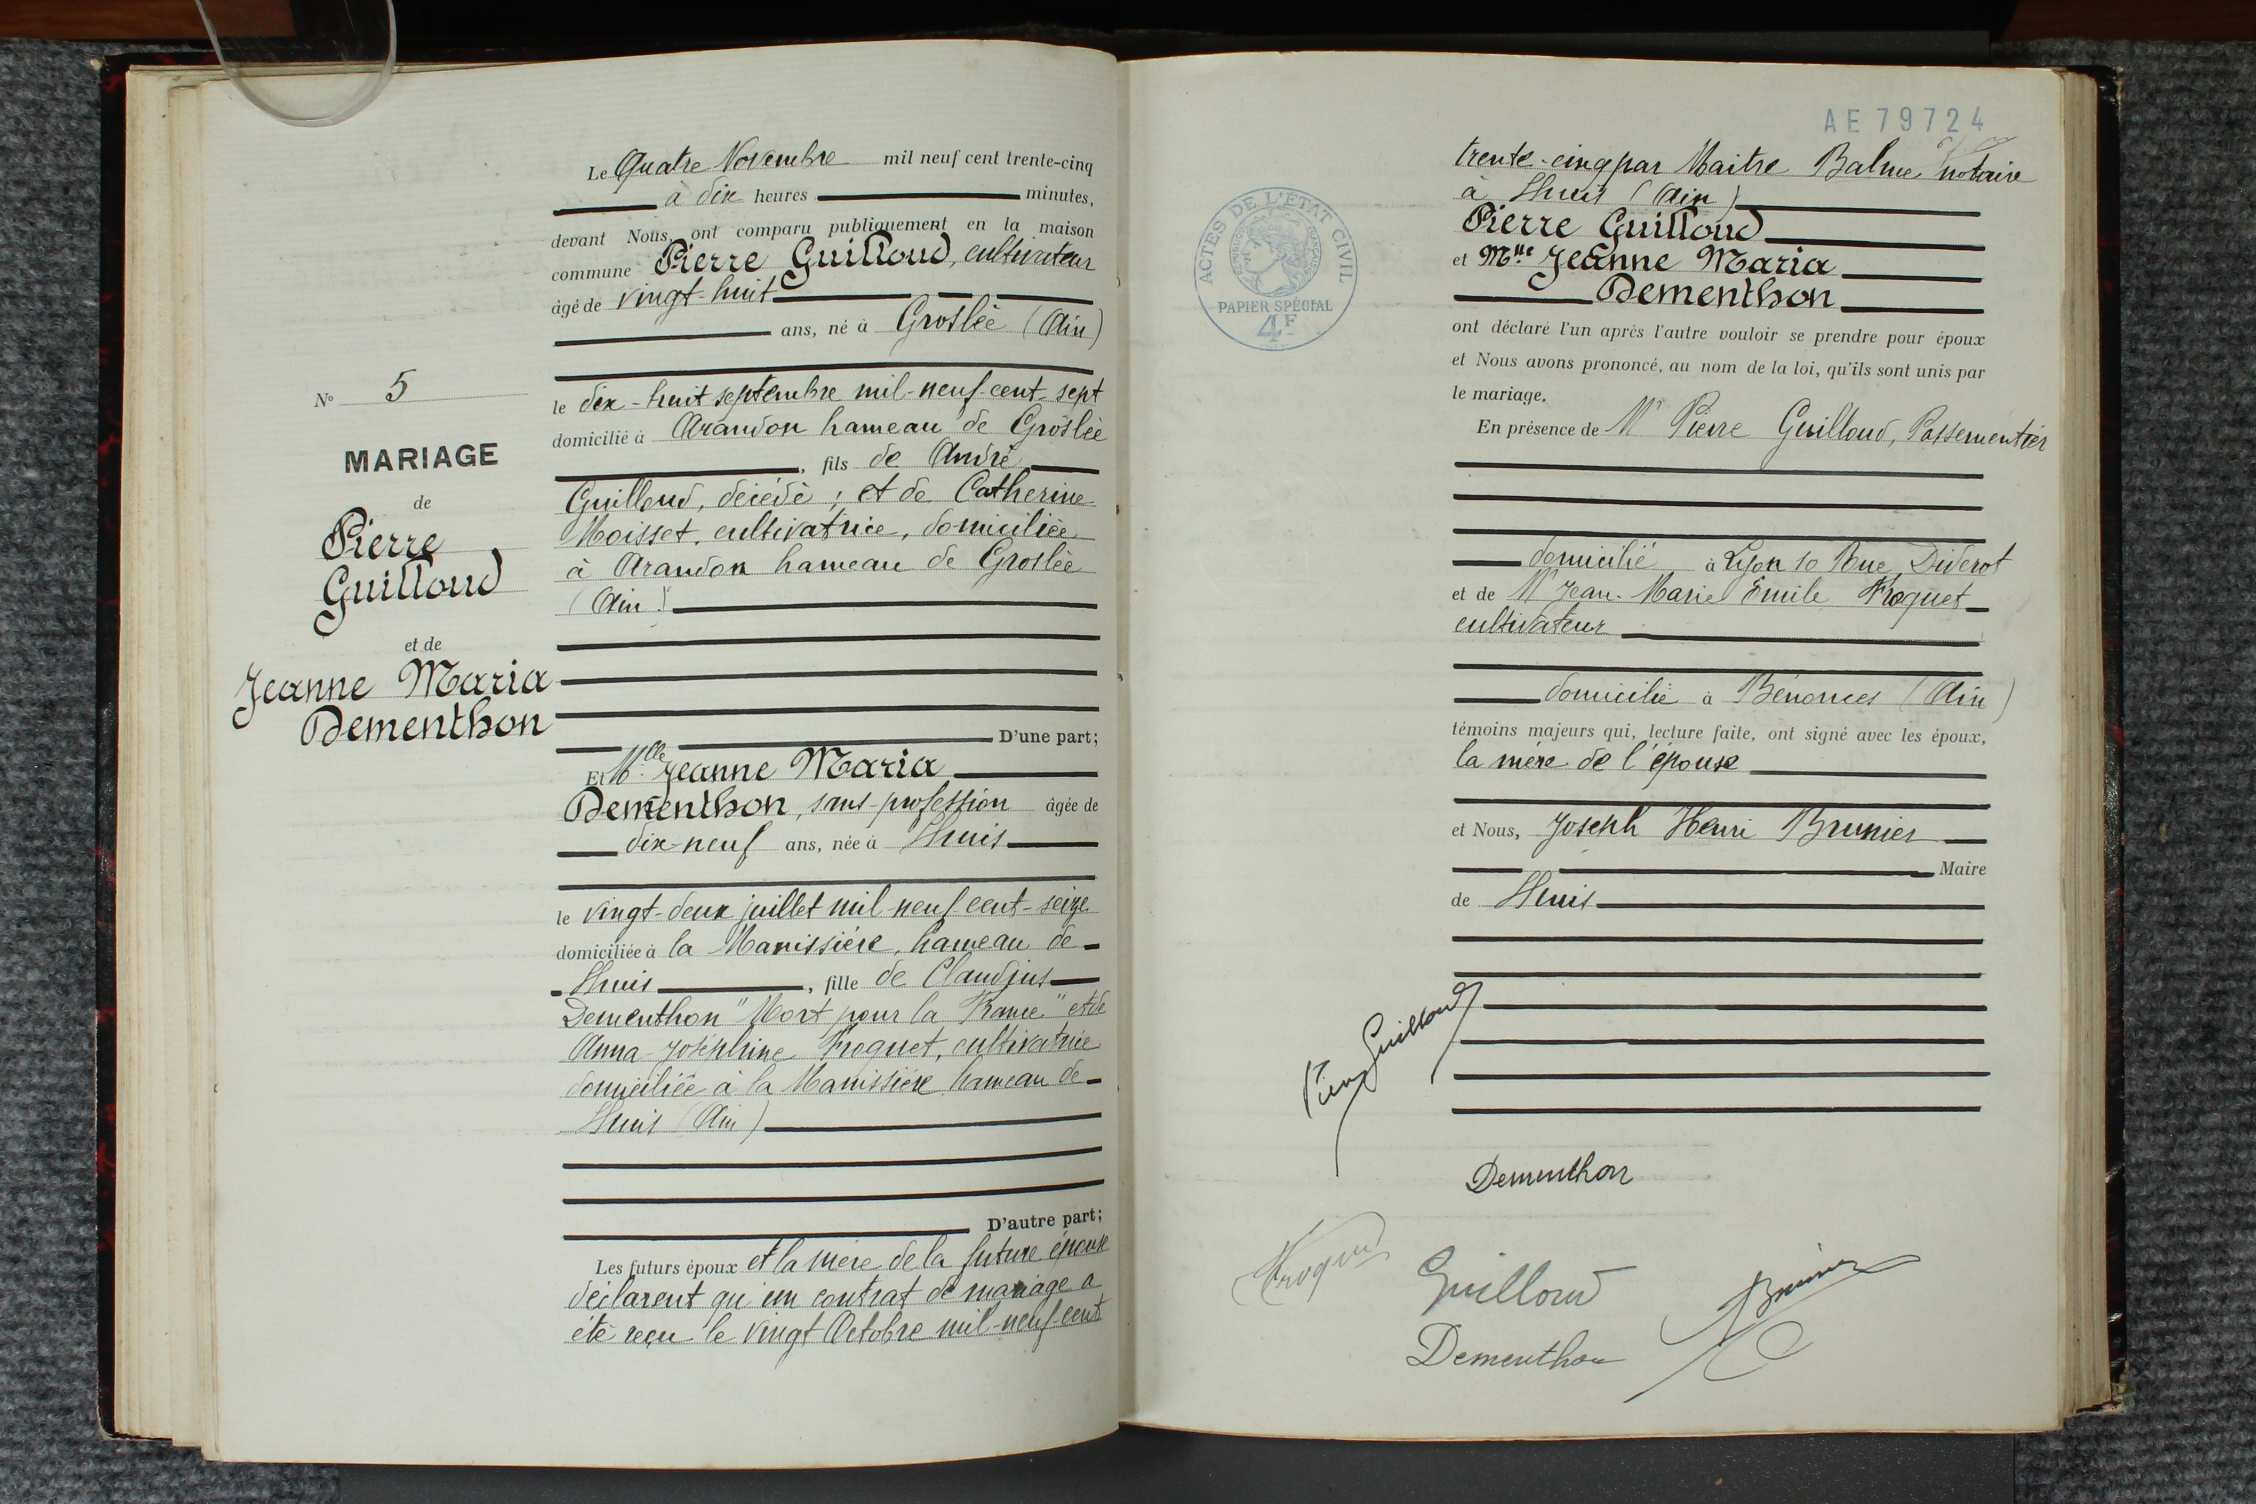 Le Quatre Novembre mil neuf cent trente-cinq
à dix heures minutes,
devant Nous, ont comparu publiquement en la maison
commune Pierre Guilloud, cultivateur
âgé de vingt-huit
ans, né à Groslée (Ain)
le dix-huit septembre mil-neuf-cent-sept
domicilié à Arandon hameau de Groslée
, fils de André
Guilloud, décédé ; et de Catherine
Moisset, cultivatrice, domiciliée
à Arandon hameau de Groslée
(Ain)
D'une part;
N° 5
MARIAGE
de
Pierre
Guilloud
et de
Jeanne Maria
Dementhon
Et Mlle Jeanne Maria
Dementhon, sans profession âgée de
dix-neuf ans, née à Lhuis
le vingt-deux juillet mil neuf cent-seize
domiciliée à la Manissière, hameau de
Lhuis, fille de Claudius
Dementhon "Mort pour la France" et de
Anna-Joséphine Froquet, cultivatrice
domiciliée à la Manissière hameau de
Lhuis (Ain)
D'autre part;
Les futurs époux et la mère de la future épouse
déclarent qu'un contrat de mariage a
été reçu le vingt Octobre mil-neuf-cent
AE 79724
ACTES DE L'ÉTAT CIVIL
PAPIER SPÉCIAL
4F
trente-cinq par Maître Balme notaire
à Lhuis (Ain)
Pierre Guilloud
et Mlle Jeanne Maria
Dementhon
ont déclaré l'un après l'autre vouloir se prendre pour époux
et Nous avons prononcé, au nom de la loi, qu'ils sont unis par
le mariage.
En présence de Mr Pierre Guilloud, Passementier
domicilié à Lyon 10 Rue Diderot
et de Mr Jean-Marie Emile Froquet
cultivateur
domicilié à Bénonces (Ain)
témoins majeurs qui, lecture faite, ont signé avec les époux,
la mère de l'épouse
et Nous, Joseph Henri Brunier
Maire
de Lhuis
Pierre Guilloud
Dementhon
Froquet
Guilloud
Brunier
Dementhon